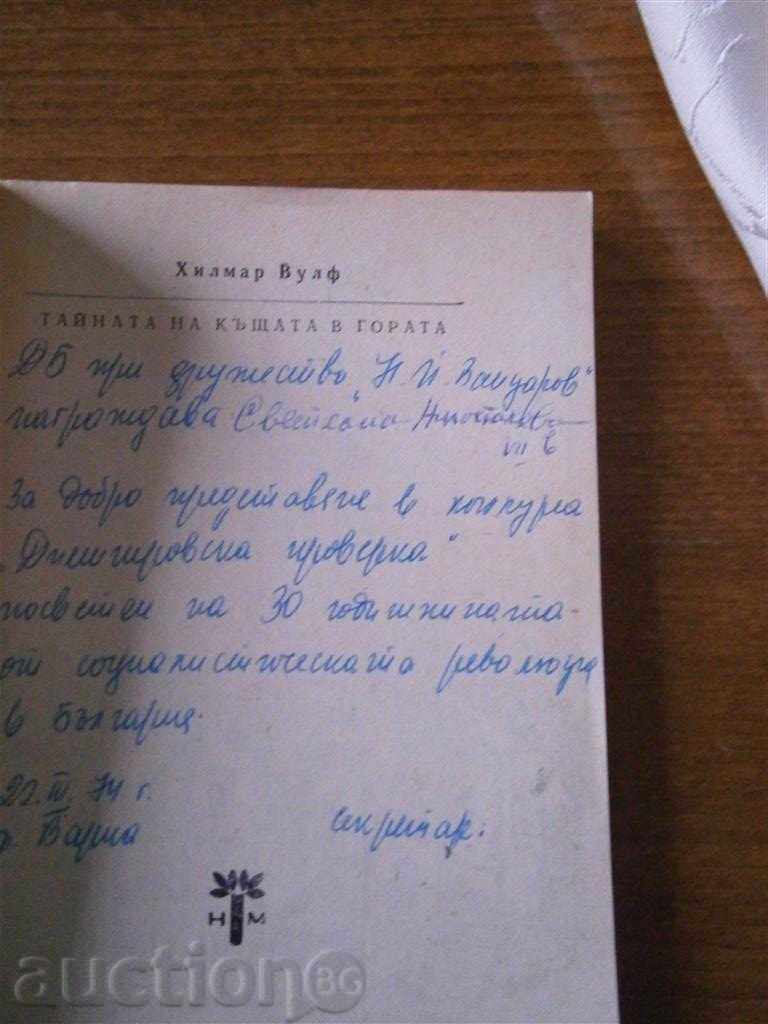 Хилмар Вулф
ТАЙНАТА НА КЪЩАТА В ГОРАТА
ДБ при дружество „Н. Й. Вапцаров"
награждава Светлана
VII в
За добро представяне в конкурса
„Димитровска проверка"
посветен на 30 годишнината
от социалистическата революция
в България.
22. III. 74 г.
гр. Варна
секретар:
Н М
auctionBG